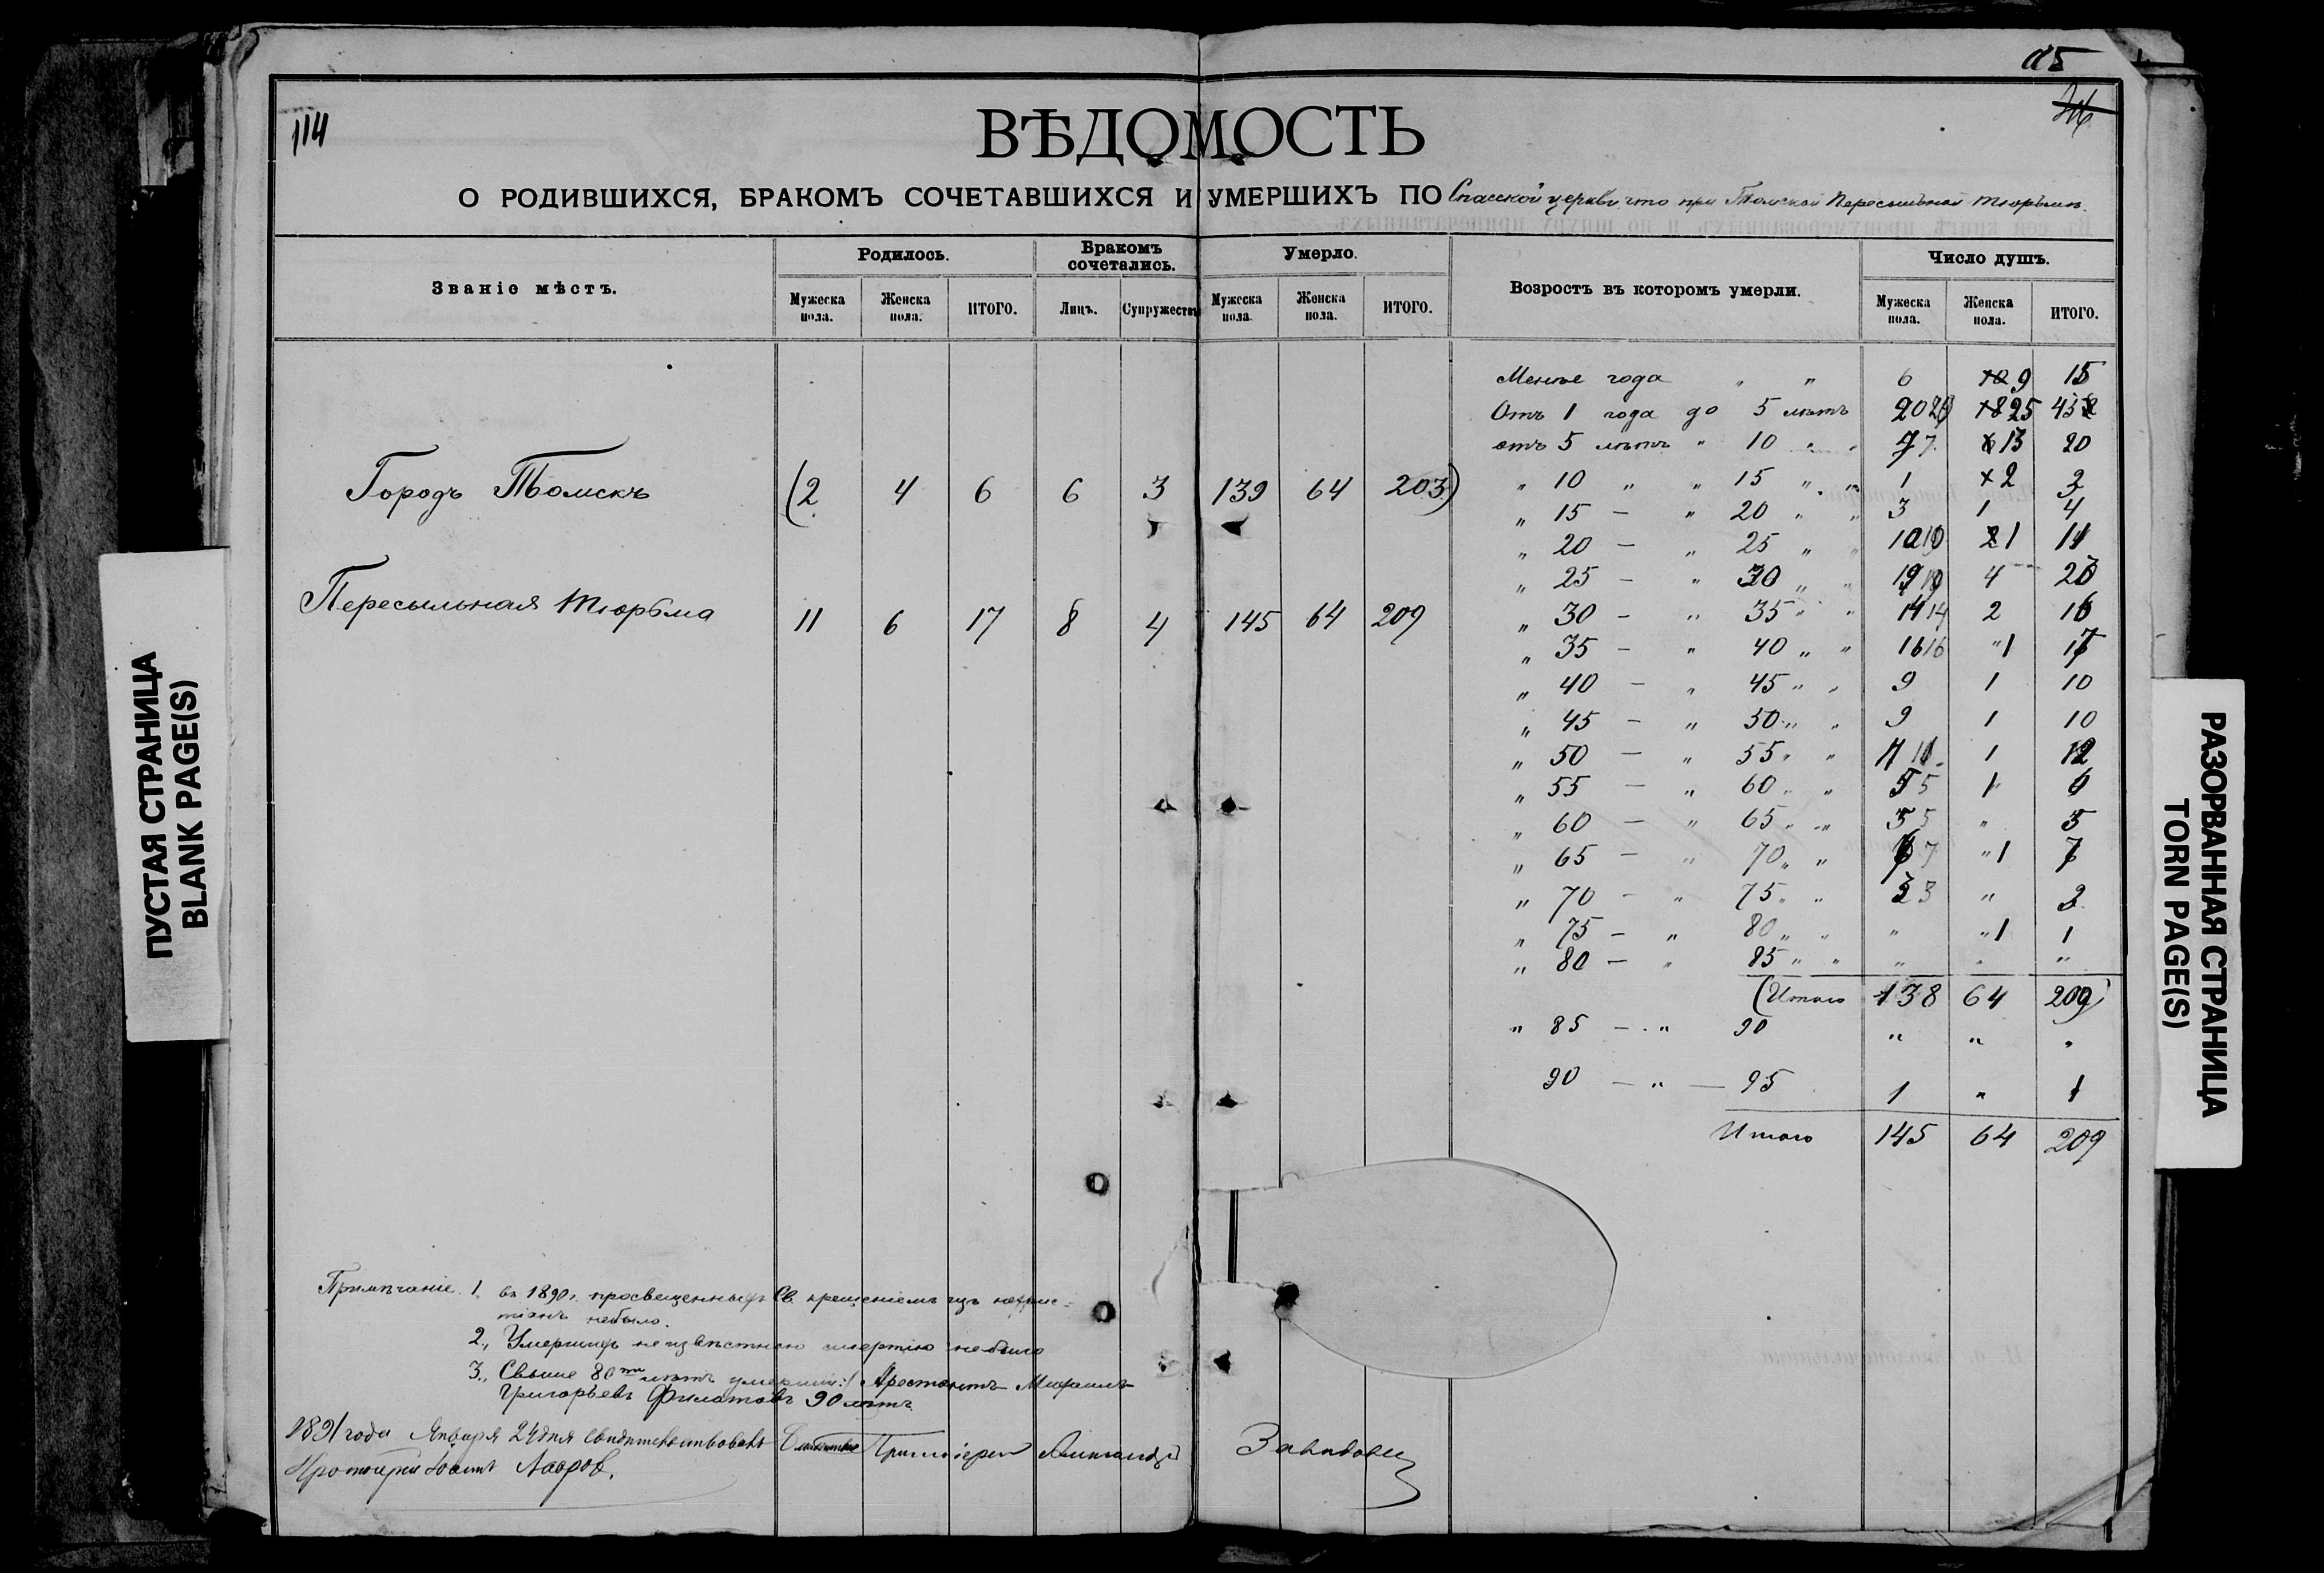 115
114
ВѢДОМОСТЬ
О РОДИВШИХСЯ, БРАКОМЪ СОЧЕТАВШИХСЯ И УМЕРШИХЪ ПО Спасской церкви что при Томской Пересыльной тюрьмѣ.
Званіе мѣстъ. Родилось. Бракомъ сочетались. Умерло. Возростъ въ которомъ умерли. Число душъ.
Мужеска пола. Женска пола. ИТОГО. Лицъ. Супружествъ Мужеска пола. Женска пола. ИТОГО. Мужеска пола. Женска пола. ИТОГО.
Городъ Томскъ (2 4 6 6 3 139 64 203)
Пересыльная тюрьма 11 6 17 8 4 145 64 209
Менѣе года " " 6 9 15
Отъ 1 года до 5 лѣтъ 20 25 45
отъ 5 лѣтъ " 10 " " 7 13 20
" 10 " " 15 " " 1 2 3
" 15 — " 20 " " 3 1 4
" 20 — " 25 " " 10 1 11
" 25 — " 30 " " 19 4 23
" 30 — " 35 " " 14 2 16
" 35 — " 40 " " 16 1 17
" 40 — " 45 " " 9 1 10
" 45 — " 50 " " 9 1 10
" 50 — " 55 " " 11 1 12
" 55 — " 60 " " 5 1 6
" 60 — " 65 " " 5 " 5
" 65 — " 70 " " 1 7
" 70 — " 75 " " 3 " 3
" 75 — " 80 " " " 1 1
" 80 — " 85 " " " " "
(Итого 138 64 209)
" 85 — " 90 " " "
90 — " — 95 1 " 1
Итого 145 64 209
Примѣчаніе 1, въ 1890 г. просвещенныхъ Св. крещеніемъ изъ нехрис-
тіанъ небыло.
2, Умершихъ неизвѣстною смертію небыло
3, Свыше 80ти лѣтъ умершій: Арестантъ Михаилъ
Григорьевъ Филатовъ 90 лѣтъ
1891 года Января 24 дня свидѣтельствовалъ
Протоіерей Лавров.
ПУСТАЯ СТРАНИЦА
BLANK PAGE(S)
РАЗОРВАННАЯ СТРАНИЦА
TORN PAGE(S)